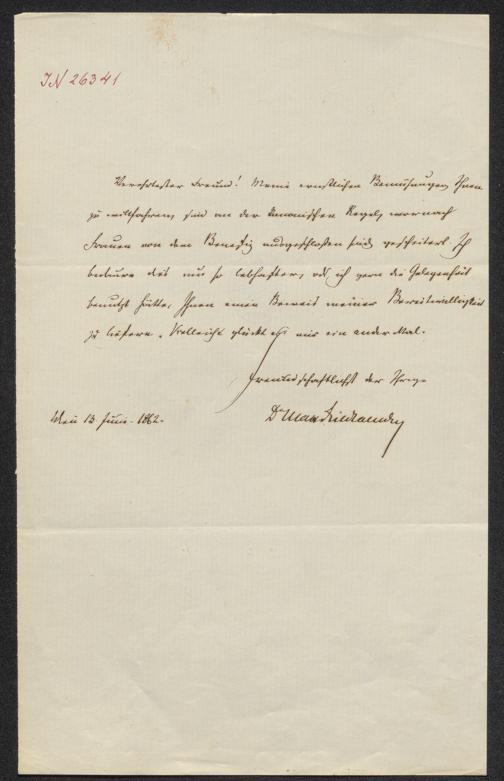 IN 26341
Verehrtester Freund! Meine ernstlichen Bemühungen, Ihnen
zu willfahren, sind an der kanonischen Regel, wornach
Frauen von dem Benefiz ausgeschloßen sind, gescheitert. Ich
bedaure dies um so lebhafter, als ich gern die Gelegenheit
benutzt hätte, Ihnen einen Beweis meiner Bereitwilligkeit
zu liefern. Vielleicht glückt es mir ein ander Mal.
Freundschaftlichst der Ihrige
Wien 13 Juni 1862.
Dr Max Friedlaender